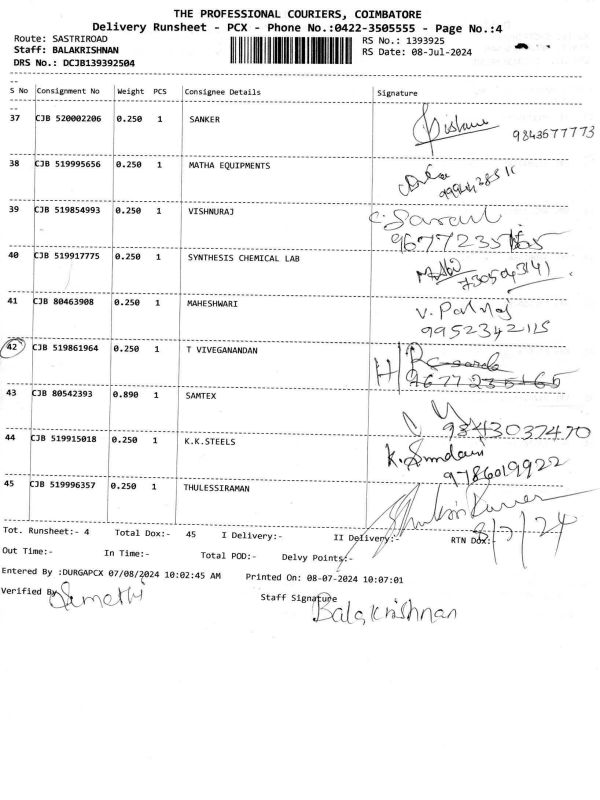 THE PROFESSIONAL COURIERS, COIMBATORE
Delivery Runsheet - PCX - Phone No.:0422-3505555 - Page No.:4
Route: SASTRIROAD
RS No.: 1393925
Staff: BALAKRISHNAN
RS Date: 08-Jul-2024
DRS No.: DCJB139392504
S No Consignment No Weight PCS Consignee Details Signature
37 CJB 520002206 0.250 1 SANKER
9843677773
38 CJB 519995656 0.250 1 MATHA EQUIPMENTS
39 CJB 519854993 0.250 1 VISHNURAJ C. Saravi
40 CJB 519917775 0.250 1 SYNTHESIS CHEMICAL LAB
7305043141
41 CJB 80463908 0.250 1 MAHESHWARI
9952342115
42 CJB 519861964 0.250 1 T VIVEGANANDAN
43 CJB 80542393 0.890 1 SAMTEX
9843037470
44 CJB 519915018 0.250 1 K.K.STEELS K. Sundari
9786019922
45 CJB 519996357 0.250 1 THULESSIRAMAN
8/7/24
Tot. Runsheet:- 4 Total Dox:- 45 I Delivery:- II Delivery:- RTN Dox:-
Out Time:- In Time:- Total POD:- Delvy Points:-
Entered By :DURGAPCX 07/08/2024 10:02:45 AM Printed On: 08-07-2024 10:07:01
Verified By Staff Signature
Balakrishnan